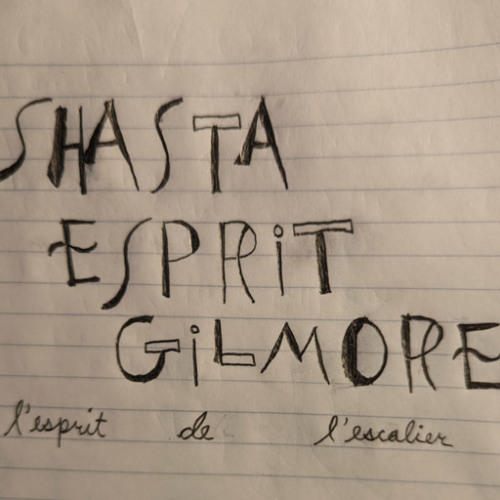 SHASTA
ESPRiT
GiLMORE
l'esprit de l'escalier